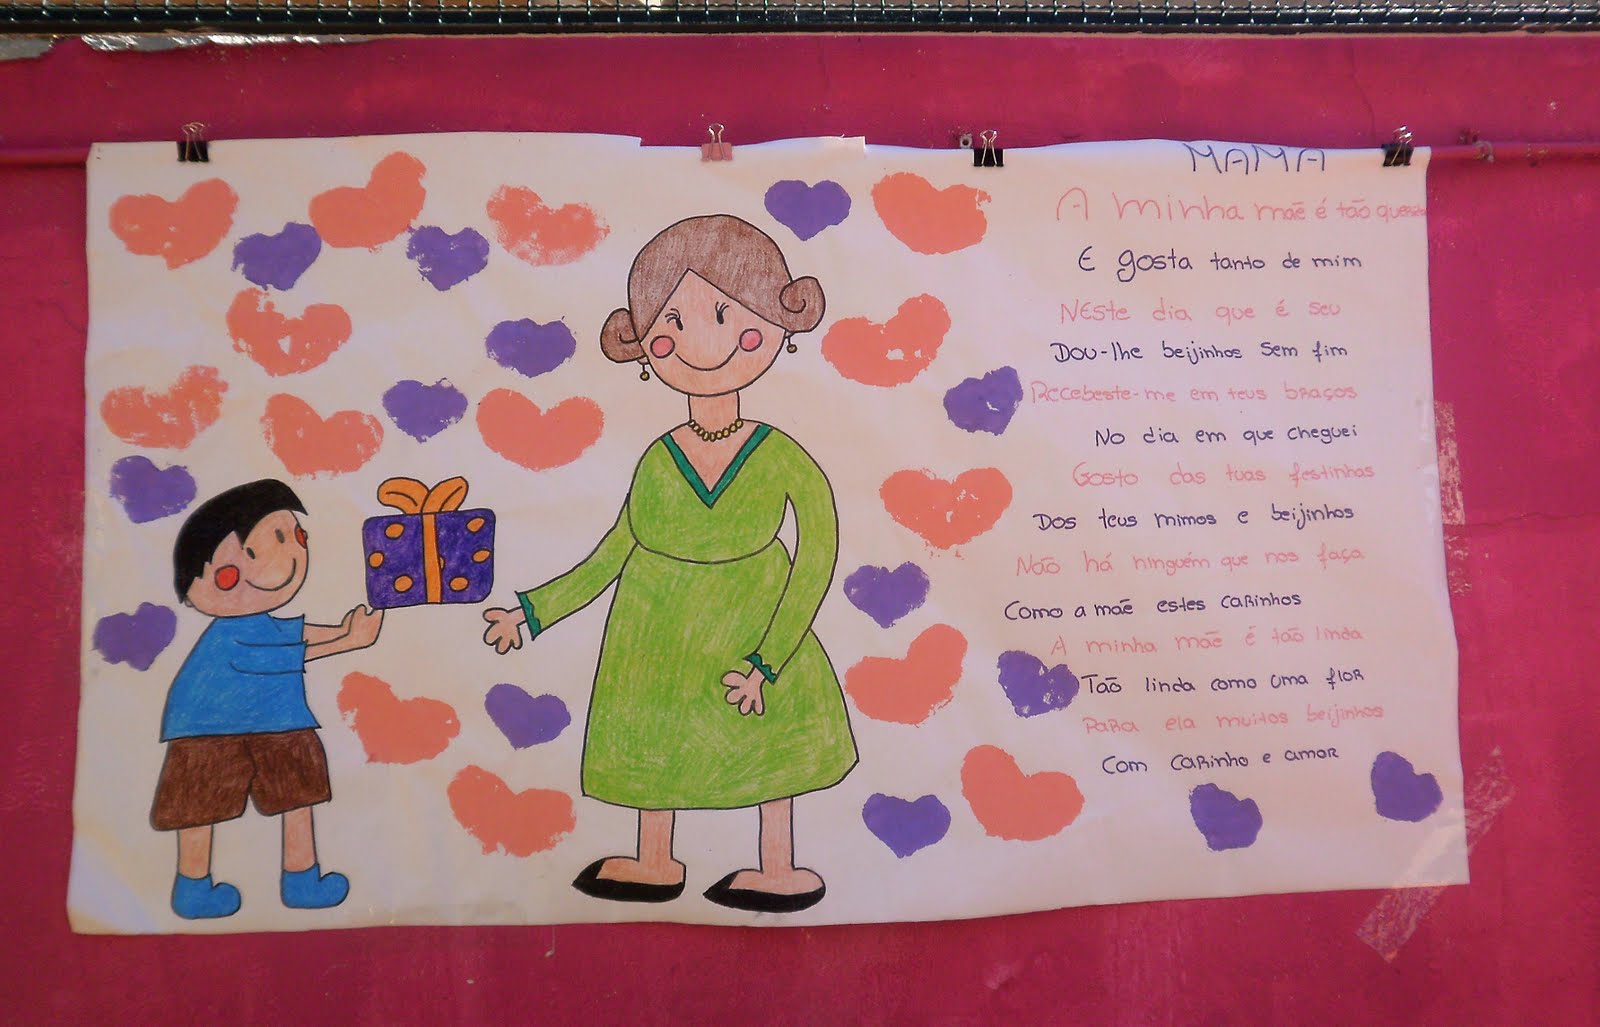 MAMA
A minha mãe é tão querida
E gosta tanto de mim
Neste dia que é seu
Dou-lhe beijinhos sem fim
Recebeste-me em teus braços
No dia em que cheguei
Gosto das tuas festinhas
Dos teus mimos e beijinhos
Não há ninguém que nos faça
Como a mãe estes carinhos
A minha mãe é tão linda
Tão linda como uma flor
Para ela muitos beijinhos
Com carinho e amor